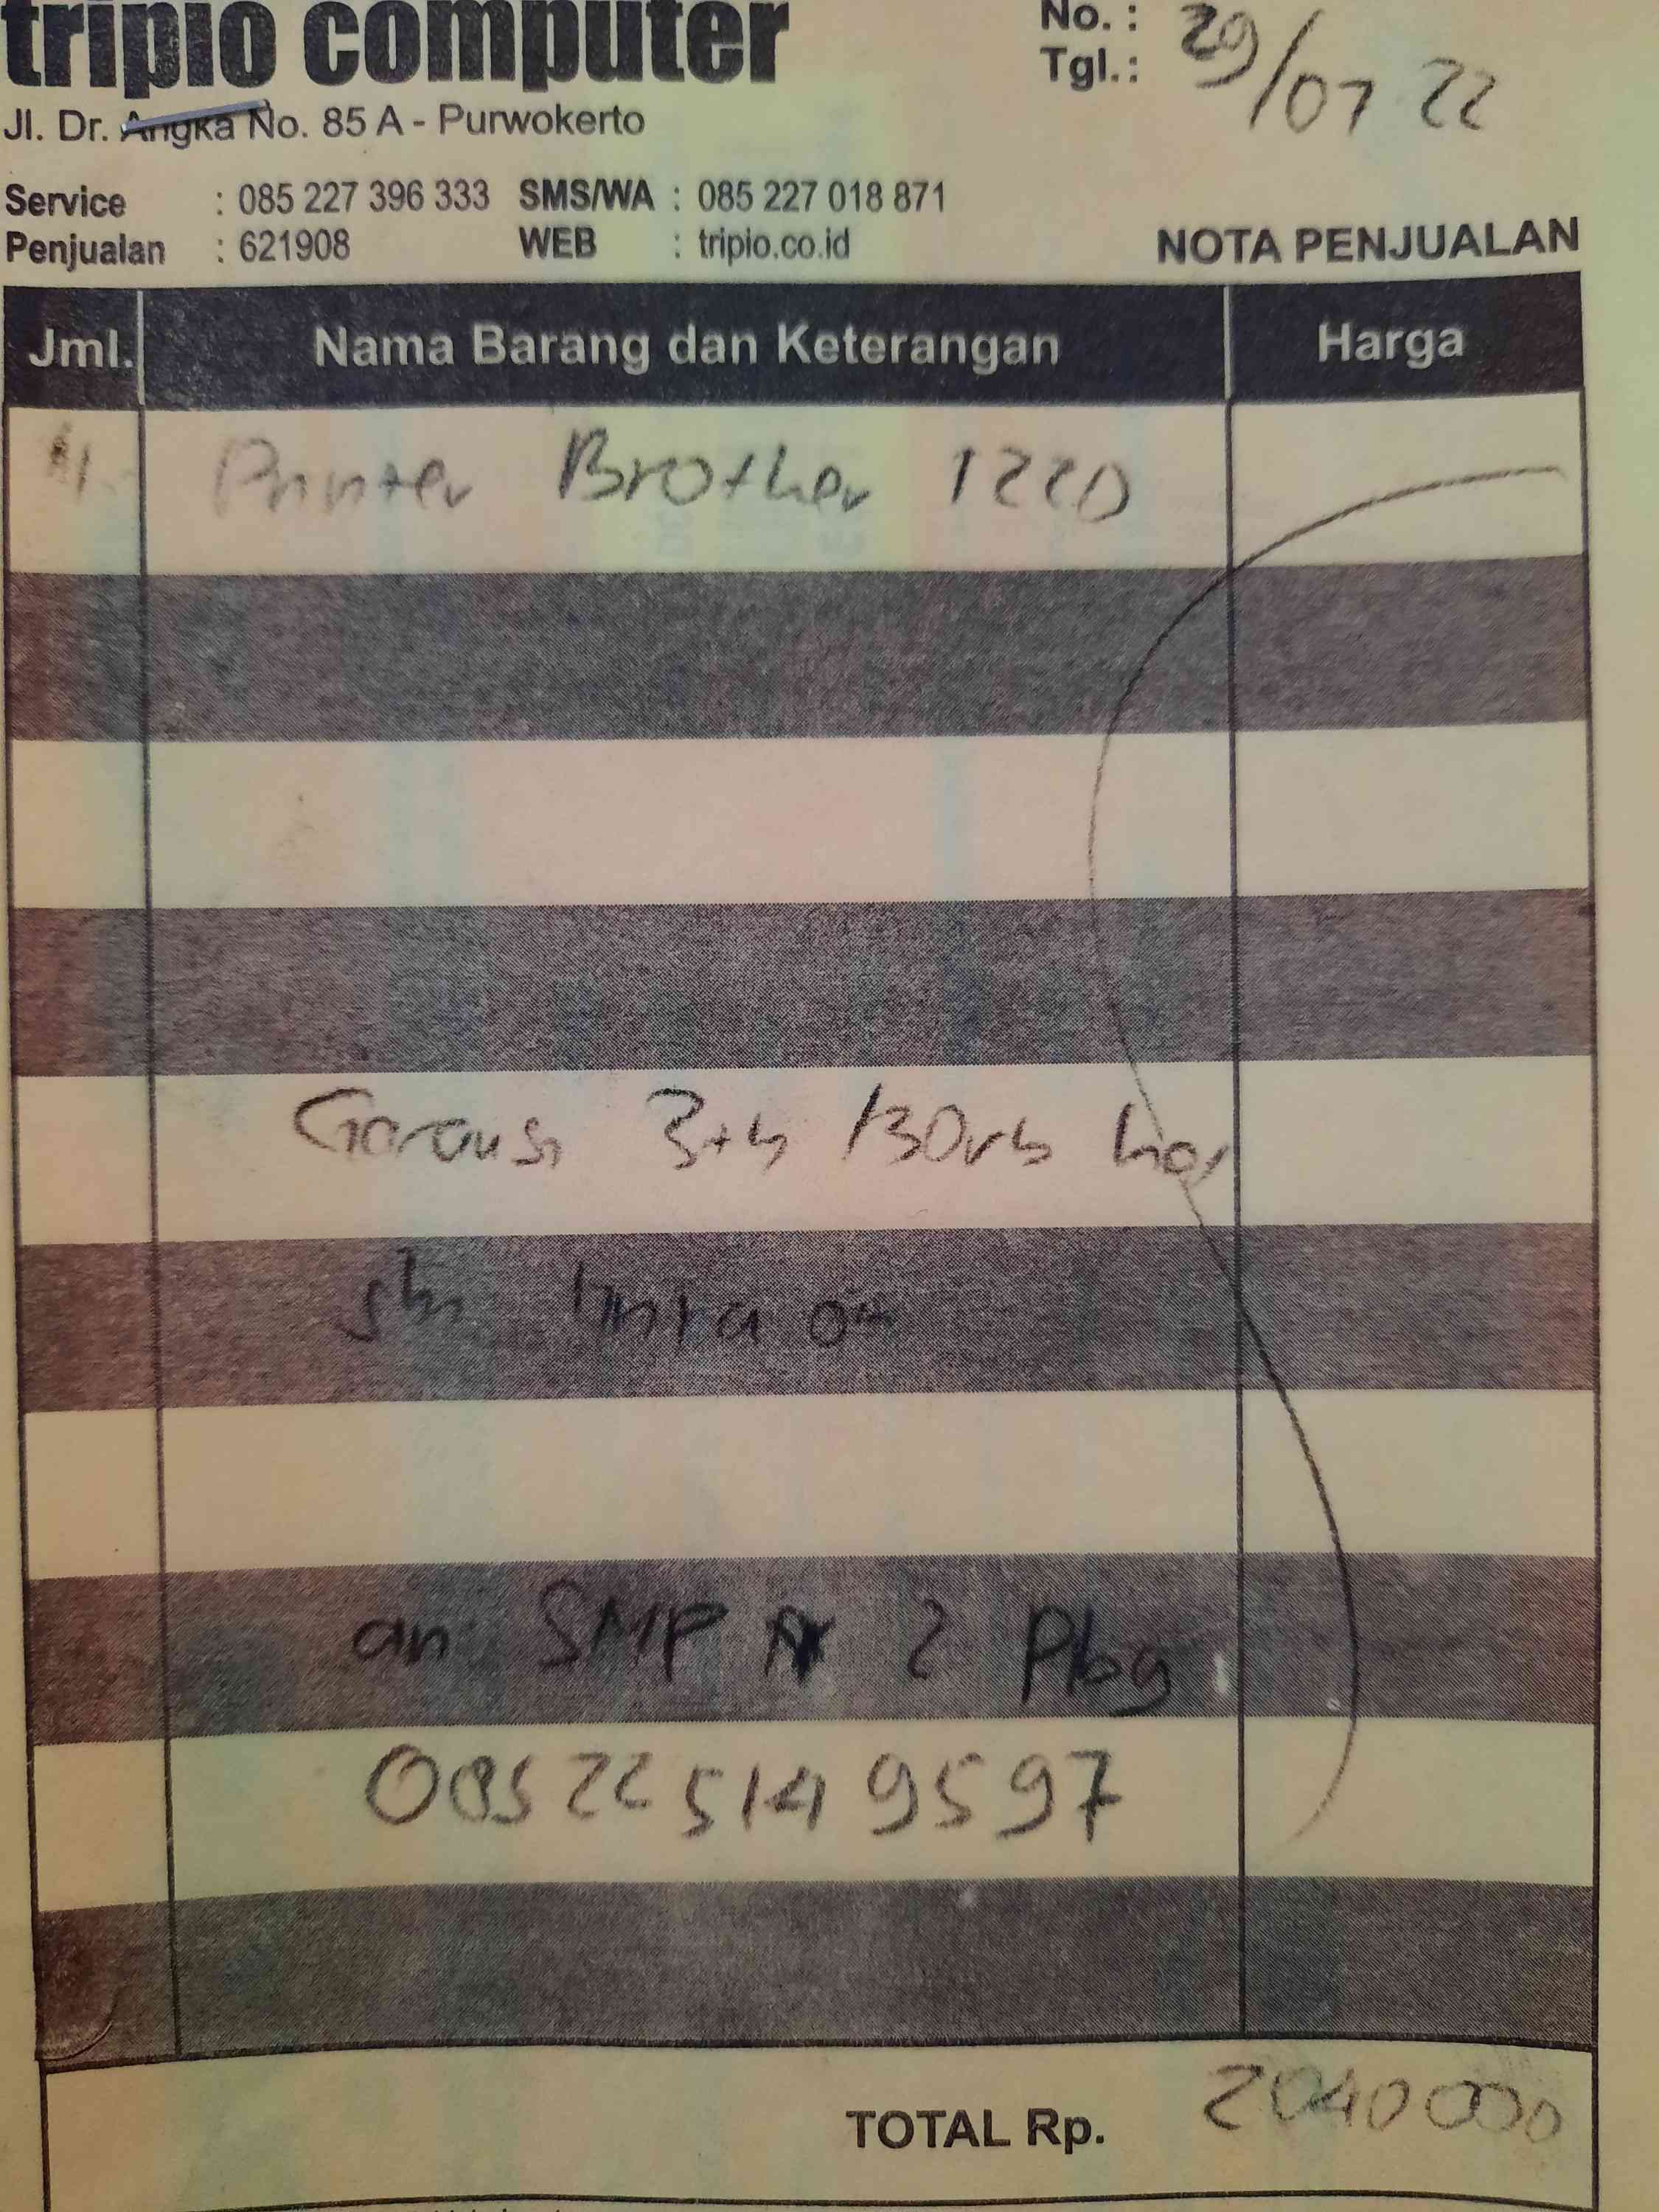 tripio computer
No. :
Tgl. : 29/07 22
Jl. Dr. Angka No. 85 A - Purwokerto
Service : 085 227 396 333 SMS/WA : 085 227 018 871
Penjualan : 621908 WEB : tripio.co.id
NOTA PENJUALAN
Jml. Nama Barang dan Keterangan Harga
1 Printer Brother 122D
Garansi 3th /30rb
an SMP N 2 Pbg
085225149597
TOTAL Rp. 2040000